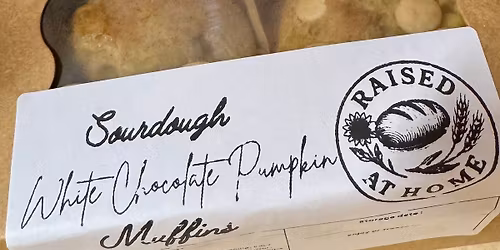 Sourdough
White Chocolate Pumpkin
Muffins
RAISED
AT HOME
Storage date: